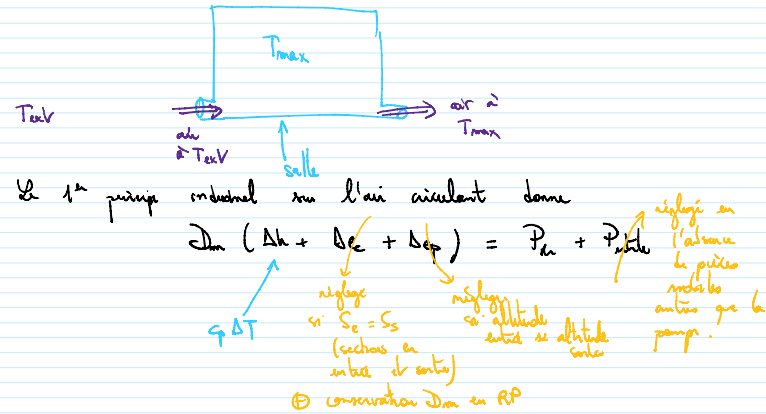 Tmax
Text
air
à Text
air à
Tmax
salle
Le 1er principe industriel sur l'air circulant donne
Dm (Δh + Δec + Δep) = Pth + Putile
cp ΔT
négligé
si Se = Ss
(sections en
entrée et sortie)
⊕ conservation Dm en RP
négligé
si altitude
entrée ≃ altitude
sortie
négligé en
l'absence
de pièces
mobiles
autres que la
pompe.